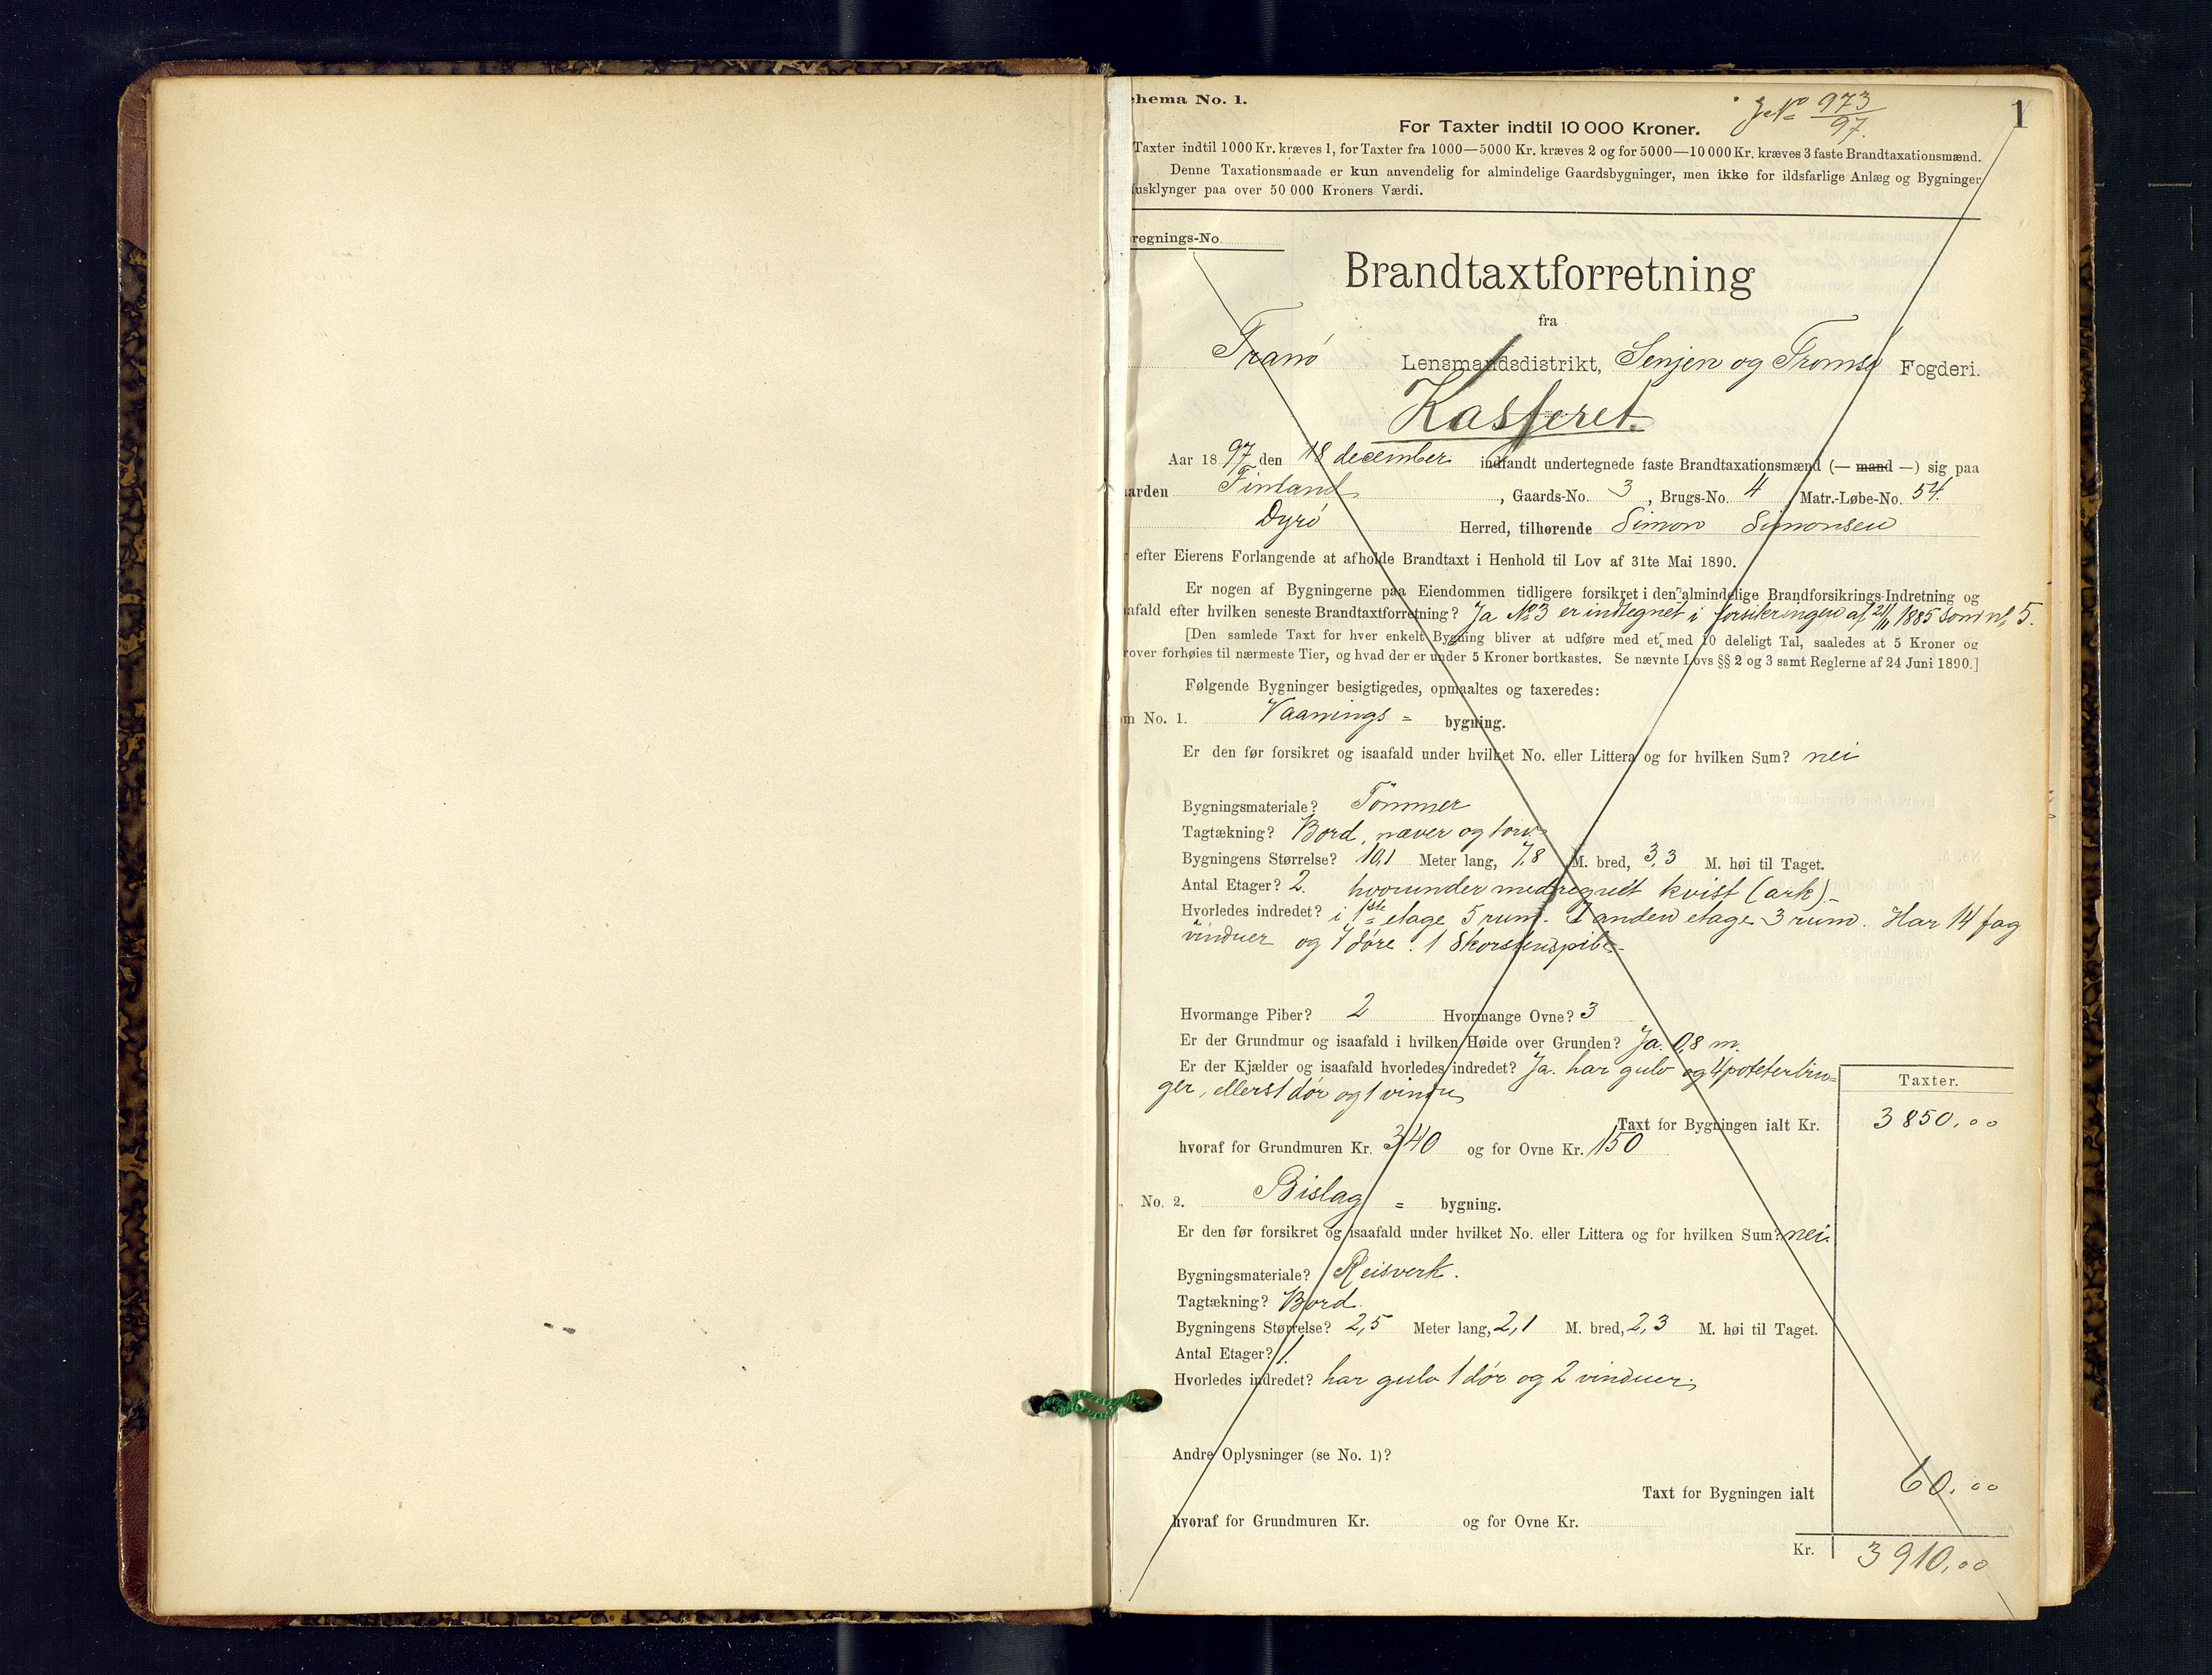 chema No. 1.
J№ 973/97.
1
For Taxter indtil 10 000 Kroner.
Taxter indtil 1000 Kr. kræves 1, for Taxter fra 1000—5000 Kr. kræves 2 og for 5000—10 000 Kr. kræves 3 faste Brandtaxationsmænd.
Denne Taxationsmaade er kun anvendelig for almindelige Gaardsbygninger, men ikke for ildsfarlige Anlæg og Bygninger
usklynger paa over 50 000 Kroners Værdi.
regnings-No.
Brandtaxtforretning
fra
Tranö Lensmandsdistrikt, Senjen og Tromsø Fogderi.
Kasseret.
Aar 1897 den 18 december indfandt undertegnede faste Brandtaxationsmænd (— mand —) sig paa
aarden Finland, Gaards-No. 3, Brugs-No. 4 Matr.-Løbe-No. 54.
Dyrö Herred, tilhørende Simon Simonsen
efter Eierens Forlangende at afholde Brandtaxt i Henhold til Lov af 31te Mai 1890.
Er nogen af Bygningerne paa Eiendommen tidligere forsikret i den almindelige Brandforsikrings-Indretning og
afald efter hvilken seneste Brandtaxtforretning? Ja № 3 er indtegnet i forsikringen af 21/11 1885 som n° 5.
[Den samlede Taxt for hver enkelt Bygning bliver at udføre med et, med 10 deleligt Tal, saaledes at 5 Kroner og
rover forhøies til nærmeste Tier, og hvad der er under 5 Kroner bortkastes. Se nævnte Lovs §§ 2 og 3 samt Reglerne af 24 Juni 1890.]
Følgende Bygninger besigtigedes, opmaaltes og taxeredes:
m No. 1. Vaanings = bygning.
Er den før forsikret og isaafald under hvilket No. eller Littera og for hvilken Sum? nei
Bygningsmateriale? Tömmer
Tagtækning? Bord, næver og torv.
Bygningens Størrelse? 10,1 Meter lang, 7,8 M. bred, 3,3 M. høi til Taget.
Antal Etager? 2. hvorunder medregnet kvist (ark).-
Hvorledes indredet? i 1ste etage 5 rum. I anden etage 3 rum. Har 14 fag
vinduer og 7 döre. 1 Skorstenspibe.
Hvormange Piber? 2 Hvormange Ovne? 3
Er der Grundmur og isaafald i hvilken Høide over Grunden? Ja. 0,8 m.
Er der Kjælder og isaafald hvorledes indredet? Ja. har gulv og 4 poteterbin=
ger, ellers 1 dör og 1 vindu
Taxter.
Taxt for Bygningen ialt Kr. 3 850.00
hvoraf for Grundmuren Kr. 340 og for Ovne Kr. 150
No. 2. Bislag = bygning.
Er den før forsikret og isaafald under hvilket No. eller Littera og for hvilken Sum? nei.
Bygningsmateriale? Reisverk.
Tagtækning? Bord.
Bygningens Størrelse? 2,5 Meter lang, 2,1 M. bred, 2,3 M. høi til Taget.
Antal Etager? 1.
Hvorledes indredet? har gulv 1 dör og 2 vinduer.
Andre Oplysninger (se No. 1)?
Taxt for Bygningen ialt 60.00
hvoraf for Grundmuren Kr. og for Ovne Kr.
Kr. 3 910,00